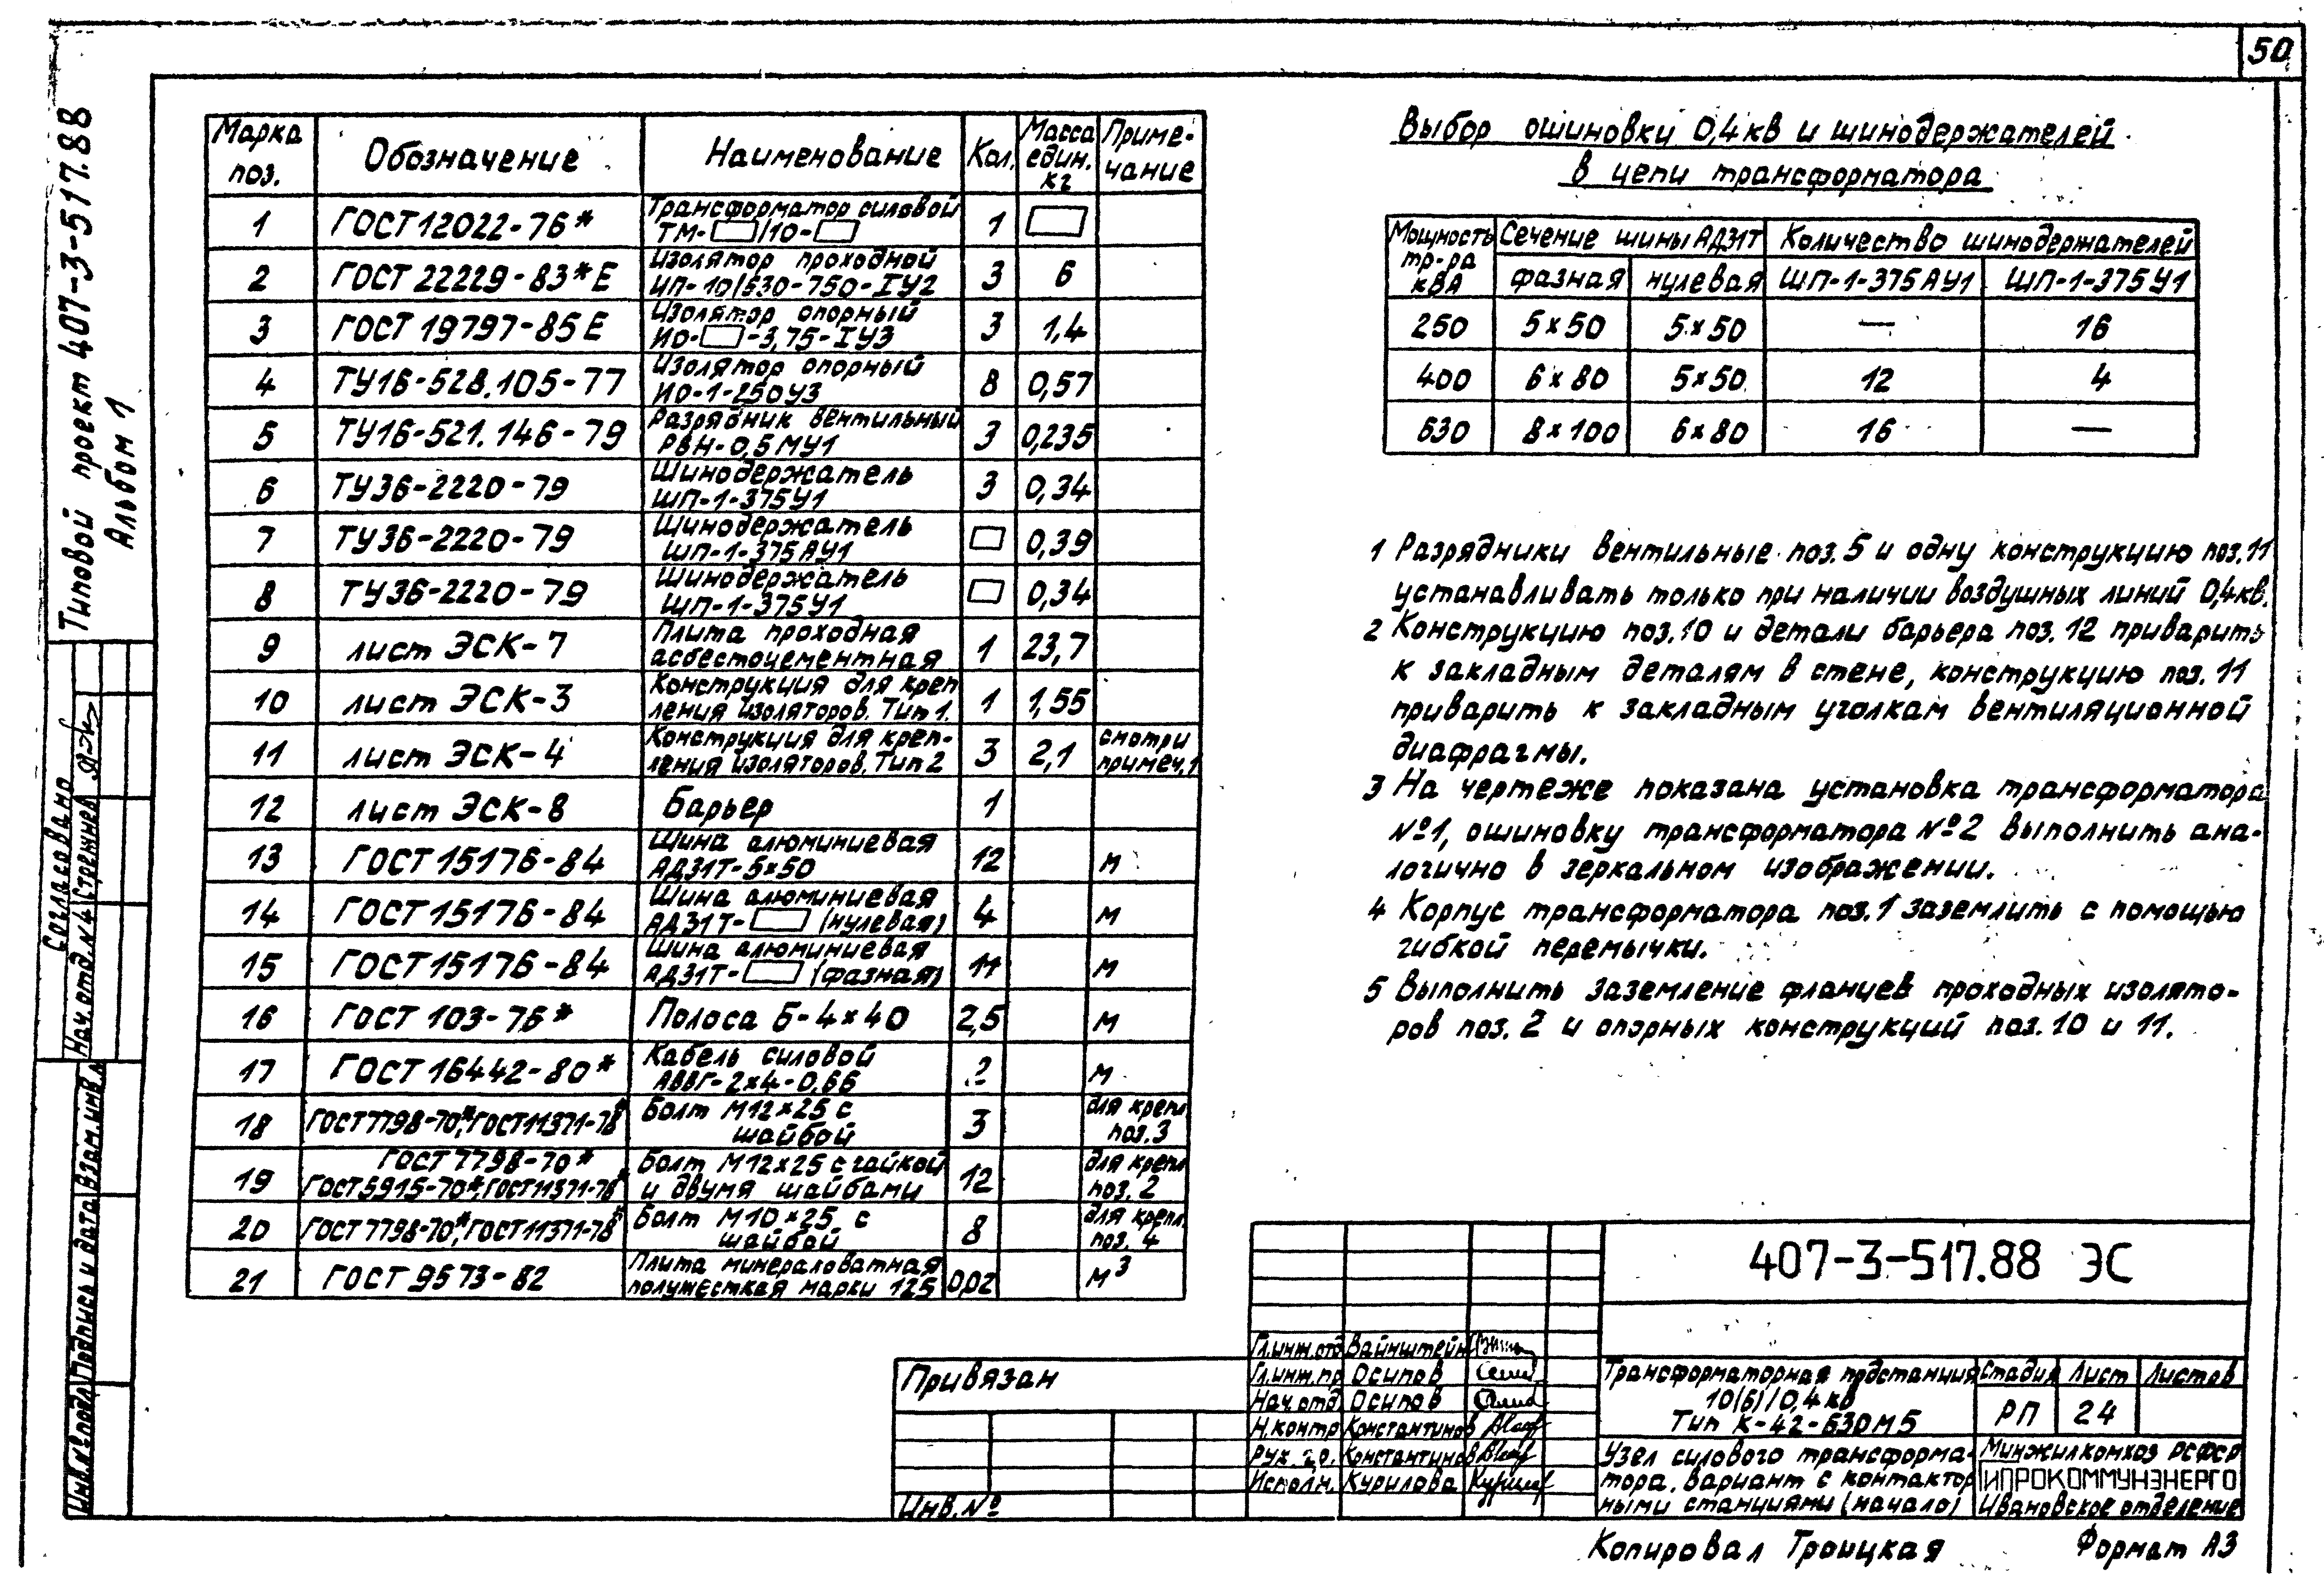 50
Типовой проект 407-3-517.88
Альбом 1
Марка поз. Обозначение Наименование Кол. Масса един. кг Приме-чание
1 ГОСТ 12022-76* Трансформатор силовой ТМ-□/10-□ 1 □
2 ГОСТ 22229-83*Е Изолятор проходной ИП-10/630-750-IУ2 3 6
3 ГОСТ 19797-85Е Изолятор опорный ИО-□-3,75-IУ3 3 1,4
4 ТУ16-528.105-77 Изолятор опорный ИО-1-250У3 8 0,57
5 ТУ16-521.146-79 Разрядник вентильный РВН-0,5МУ1 3 0,235
6 ТУ36-2220-79 Шинодержатель ШП-1-375У1 3 0,34
7 ТУ36-2220-79 Шинодержатель ШП-1-375АУ1 □ 0,39
8 ТУ36-2220-79 Шинодержатель ШП-1-375У1 □ 0,34
9 лист ЭСК-7 Плита проходная асбестоцементная 1 23,7
10 лист ЭСК-3 Конструкция для креп ления изоляторов. Тип 1. 1 1,55
11 лист ЭСК-4 Конструкция для креп-ления изоляторов. Тип 2 3 2,1 смотри примеч.1
12 лист ЭСК-8 Барьер 1
13 ГОСТ 15176-84 Шина алюминиевая АД31Т-5×50 12 м
14 ГОСТ 15176-84 Шина алюминиевая АД31Т-□ (нулевая) 4 м
15 ГОСТ 15176-84 Шина алюминиевая АД31Т-□ (фазная) 11 м
16 ГОСТ 103-76* Полоса Б-4×40 2,5 м
17 ГОСТ 16442-80* Кабель силовой АВВГ-2×4-0,66 2 м
18 ГОСТ7798-70*, ГОСТ11371-78* Болт М12×25 с шайбой 3 для крепл. поз.3
19 ГОСТ 7798-70* ГОСТ5915-70*, ГОСТ11371-78* Болт М12×25 с гайкой и двумя шайбами 12 для крепл. поз. 2
20 ГОСТ7798-70*, ГОСТ11371-78* Болт М10×25 с шайбой 8 для крепл. поз. 4
21 ГОСТ 9573-82 Плита минераловатная полужесткая марки 125 0,02 м³
Выбор ошиновки 0,4кв и шинодержателей
в цепи трансформатора
Мощность тр-ра кВА Сечение шины АД31Т Количество шинодержателей
фазная нулевая ШП-1-375АУ1 ШП-1-375У1
250 5×50 5×50 — 16
400 6×80 5×50 12 4
630 8×100 6×80 16 —
1 Разрядники вентильные поз. 5 и одну конструкцию поз.11
устанавливать только при наличии воздушных линий 0,4кв.
2 Конструкцию поз.10 и детали барьера поз. 12 приварить
к закладным деталям в стене, конструкцию поз. 11
приварить к закладным уголкам вентиляционной
диафрагмы.
3 На чертеже показана установка трансформатора
№1, ошиновку трансформатора №2 выполнить ана-
логично в зеркальном изображении.
4 Корпус трансформатора поз.1 заземлить с помощью
гибкой перемычки.
5 Выполнить заземление фланцев проходных изолято-
ров поз. 2 и опорных конструкций поз. 10 и 11.
Согласовано
Нач.отд.№4 Стрежнев
Взам.инв.№
Подпись и дата
Инв.№подл
Привязан
Инв.№
407-3-517.88 ЭС
Гл.инж.отд Вайнштейн
Гл.инж.пр Осипов
Нач.отд Осипов
Н.контр Константинов
Рук. гр. Константинов
Исполн. Курилова
Трансформаторная пдстанция
10(6)/0,4кв
Тип К-42-630М5
Стадия Лист Листов
РП 24
Узел силового трансформа-
тора. Вариант с контактор
ными станциями (начало)
Минжилкомхоз РСФСР
ГИПРОКОММУНЭНЕРГО
Ивановское отделение
Копировал Троицкая Формат А3